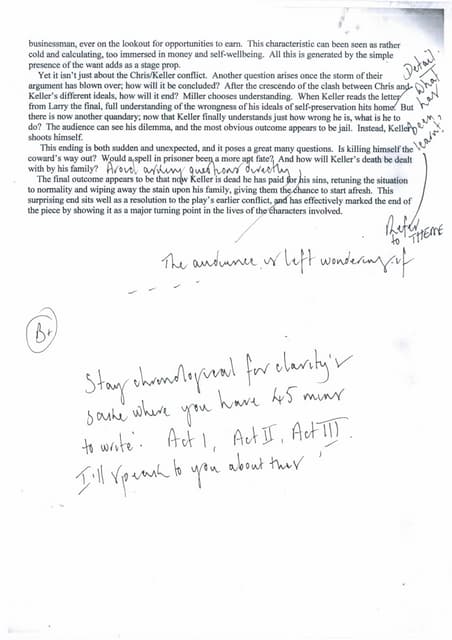 businessman, ever on the lookout for opportunities to earn. This characteristic can been seen as rather
cold and calculating, too immersed in money and self-wellbeing. All this is generated by the simple
presence of the want adds as a stage prop.
Yet it isn't just about the Chris/Keller conflict. Another question arises once the storm of their
argument has blown over; how will it be concluded? After the crescendo of the clash between Chris and
Keller's different ideals, how will it end? Miller chooses understanding. When Keller reads the letter
from Larry the final, full understanding of the wrongness of his ideals of self-preservation hits home. But
there is now another quandary; now that Keller finally understands just how wrong he is, what is he to
do? The audience can see his dilemma, and the most obvious outcome appears to be jail. Instead, Keller
shoots himself.
This ending is both sudden and unexpected, and it poses a great many questions. Is killing himself the
coward's way out? Would a spell in prisoner been a more apt fate? And how will Keller's death be dealt
with by his family? Avoid asking questions directly
The final outcome appears to be that now Keller is dead he has paid for his sins, retuning the situation
to normality and wiping away the stain upon his family, giving them the chance to start afresh. This
surprising end sits well as a resolution to the play's earlier conflict, and has effectively marked the end of
the piece by showing it as a major turning point in the lives of the characters involved.
Detail
what
has
been
learnt!
Refer
to THEME
The audience is left wondering if
B+
Stay chronological for clarity's
sake where you have 45 mins
to write. Act I, Act II, Act III.
I'll speak to you about this